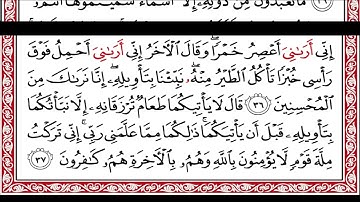 مَا تَعْبُدُونَ مِن دُونِهِۦٓ إِلَّآ أَسْمَآءً سَمَّيْتُمُوهَآ أَنتُمْ
إِنِّىٓ أَرَىٰنِىٓ أَعْصِرُ خَمْرًا ۖ وَقَالَ ٱلْـَٔاخَرُ إِنِّىٓ أَرَىٰنِىٓ أَحْمِلُ فَوْقَ
رَأْسِى خُبْزًا تَأْكُلُ ٱلطَّيْرُ مِنْهُ ۖ نَبِّئْنَا بِتَأْوِيلِهِۦٓ ۖ إِنَّا نَرَىٰكَ مِنَ
ٱلْمُحْسِنِينَ ٣٦ قَالَ لَا يَأْتِيكُمَا طَعَامٌ تُرْزَقَانِهِۦٓ إِلَّا نَبَّأْتُكُمَا
بِتَأْوِيلِهِۦ قَبْلَ أَن يَأْتِيَكُمَا ۚ ذَٰلِكُمَا مِمَّا عَلَّمَنِى رَبِّىٓ ۚ إِنِّى تَرَكْتُ
مِلَّةَ قَوْمٍ لَّا يُؤْمِنُونَ بِٱللَّهِ وَهُم بِٱلْـَٔاخِرَةِ هُمْ كَـٰفِرُونَ ٣٧